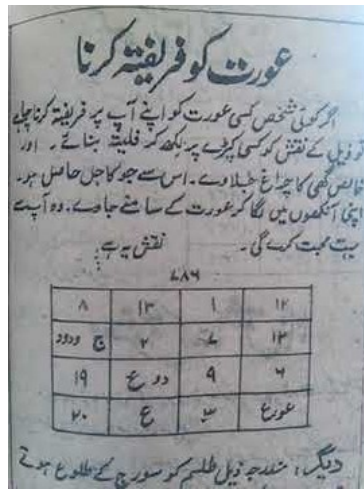 عورت کو فریفتہ کرنا
اگر کوئی شخص کسی عورت کو اپنے آپ پر فریفتہ کرنا چاہے
تو ذیل کے نقش کو کسی کپڑے پر لکھ کر فلیتہ بنائے۔ اور
خالص گھی کا چراغ جلاوے۔ اس سے جو کاجل حاصل ہو۔
اپنی آنکھوں میں لگا کر عورت کے سامنے جاوے۔ وہ آپ سے
بہت محبت کرے گی۔ نقش یہ ہے
۷۸۶
۸ ۱۳ ۱ ۱۲
ج ودود ۲ ۷ ۱۳
۱۹ دوع ۹ ۶
۲۰ ع ۳ عورع
دیگر: مندرجہ ذیل طلسم کو سورج کے طلوع ہوتے